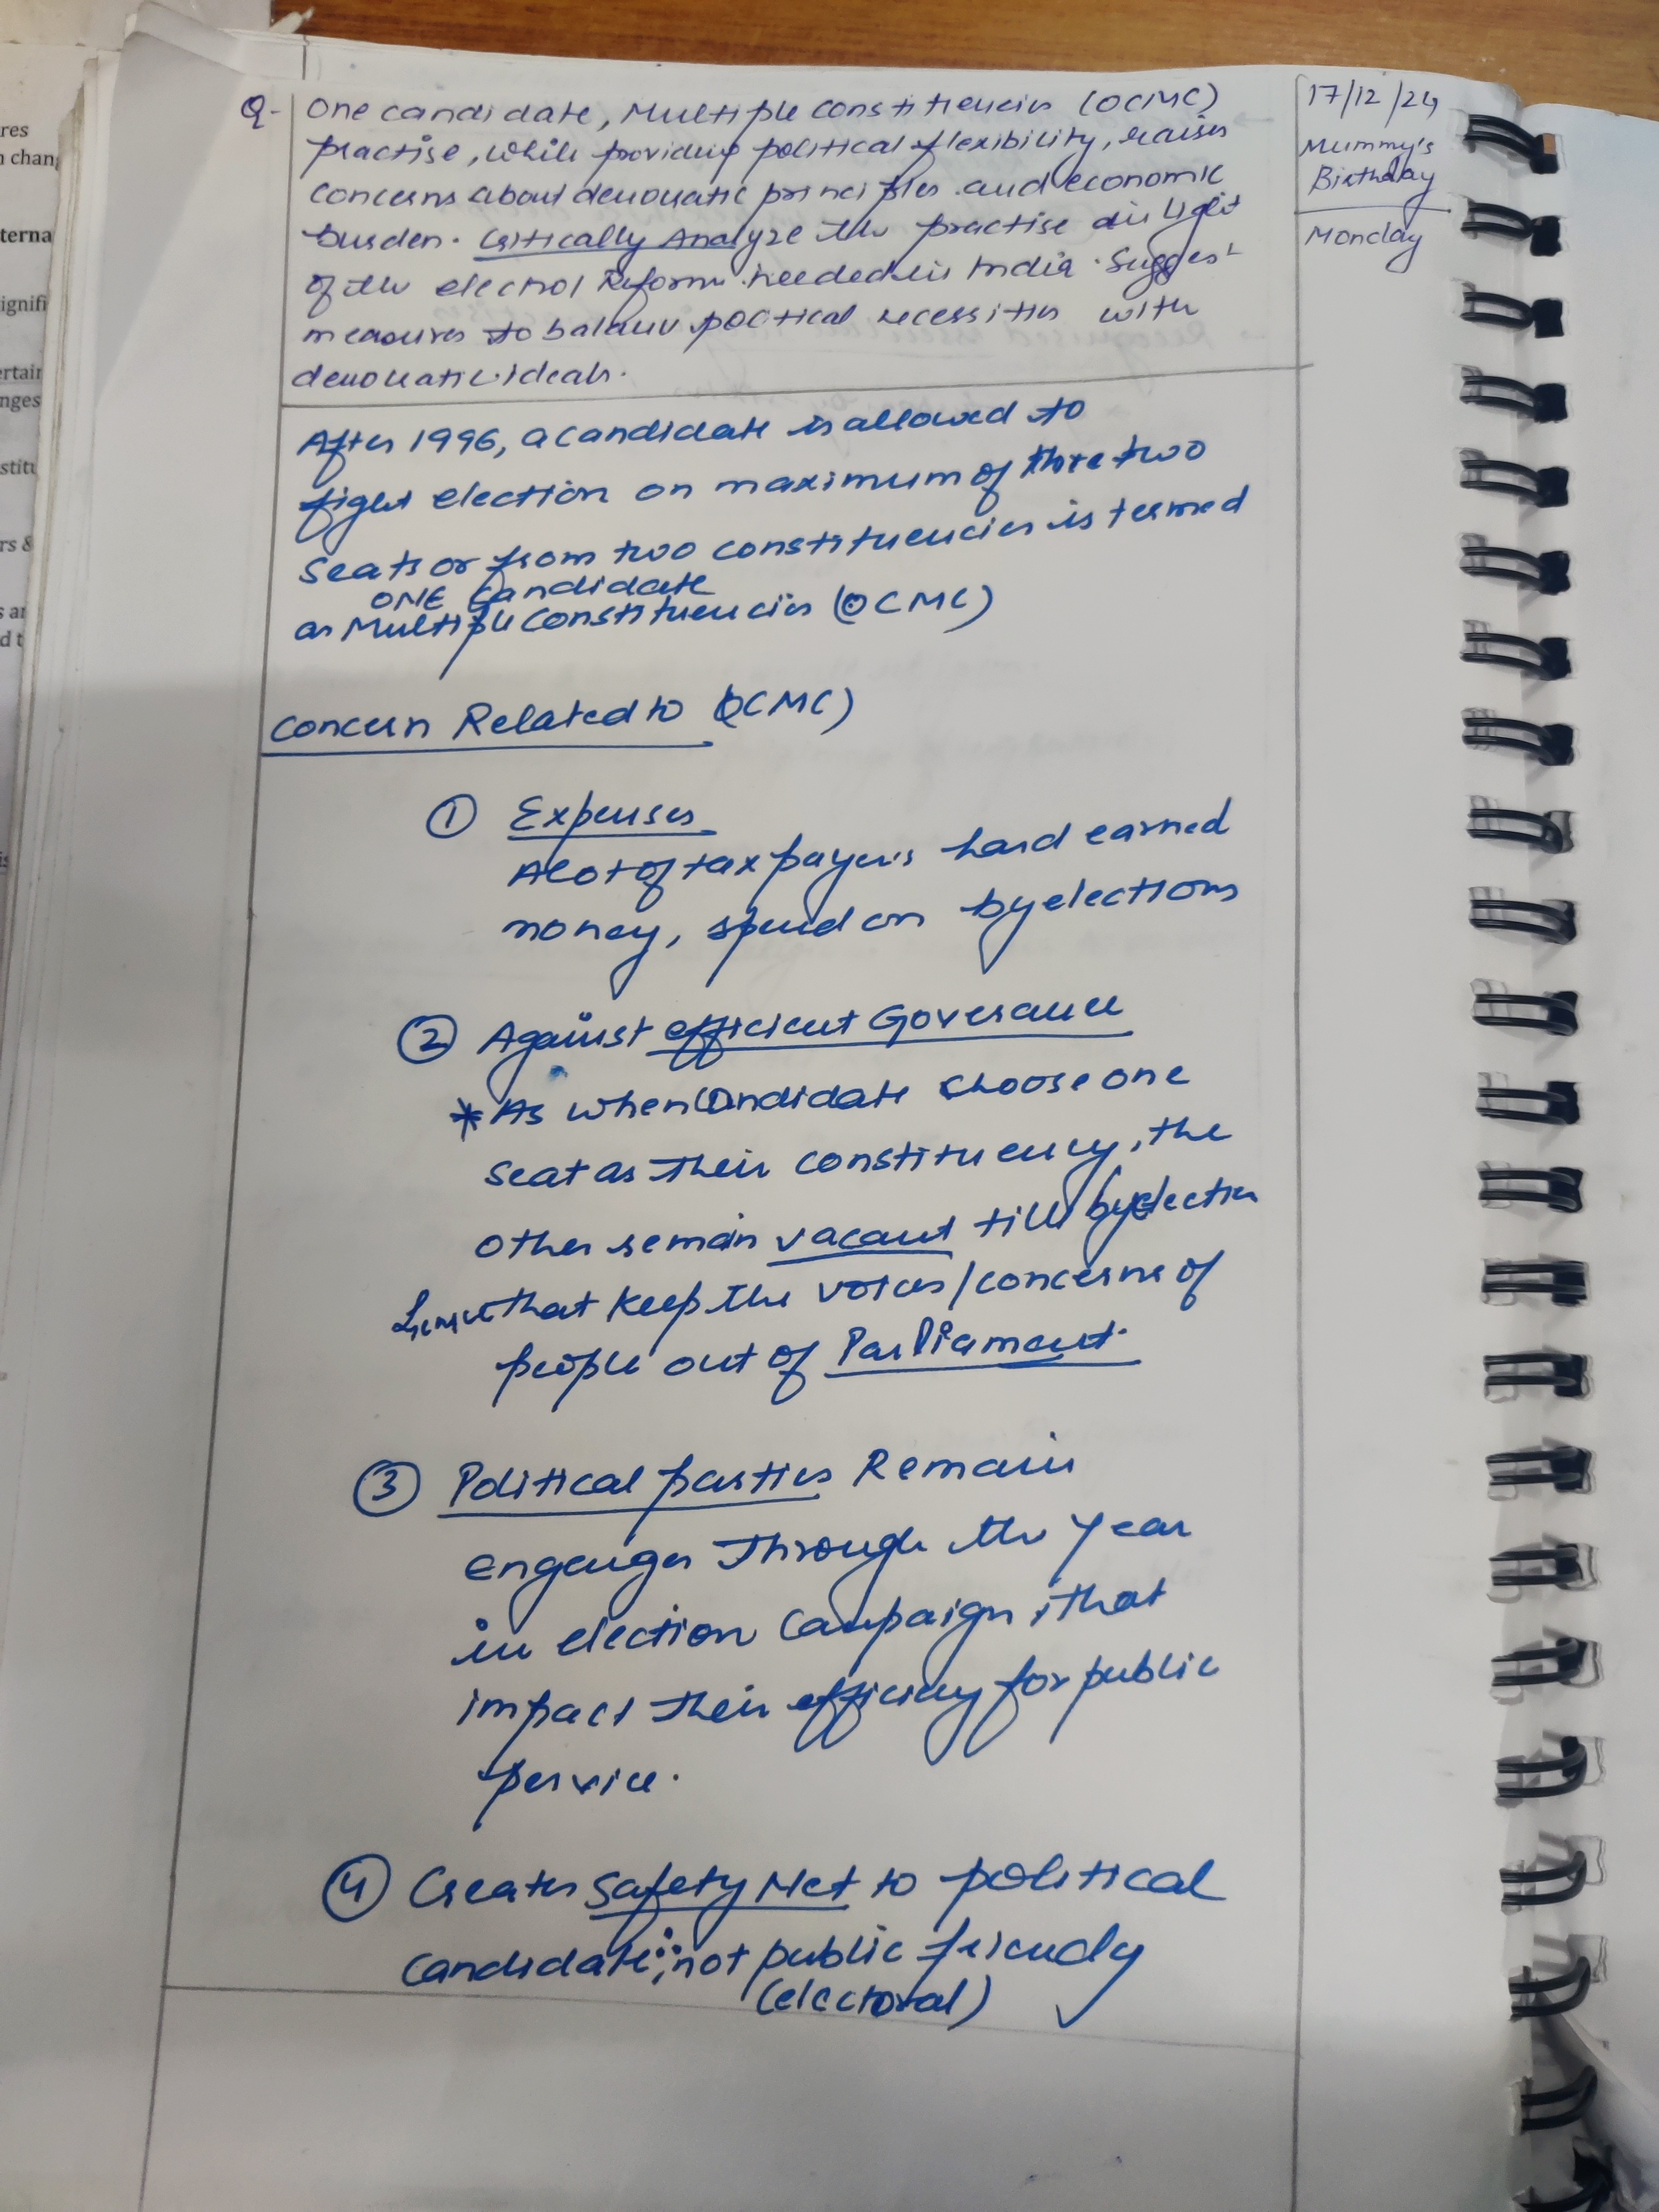 Q- One candidate, Multiple constituencies (OCMC)
practise, while providing political flexibility, raises
concerns about democratic principles and economic
burden. Critically Analyze the practise in light
of the electrol Reforms needed in India. Suggest
measures to balance political necessities with
democratic ideals.
17/12/24
Mummy's
Birthday
Monday
After 1996, a candidate is allowed to
fight election on maximum of three two
Seats or from two constituencies is termed
ONE Candidate
as Multiple Constituencies (OCMC)
Concern Related to OCMC)
① Expenses
A lot of tax payer's hard earned
money, spend on byelections
② Against efficient Goverance
* As when Candidate choose one
seat as their constituency, the
other remain vacant till byelection
that keep the voices/concerns of
people out of Parliament.
③ Political parties Remain
engauges through the year
in election Campaign, that
impact their efficiency for public
service.
④ Creates Safety Net to political
candidate; not public friendly
(electoral)
res
n chang
terna
ignifi
ertain
nges
stitu
rs &
s an
d t